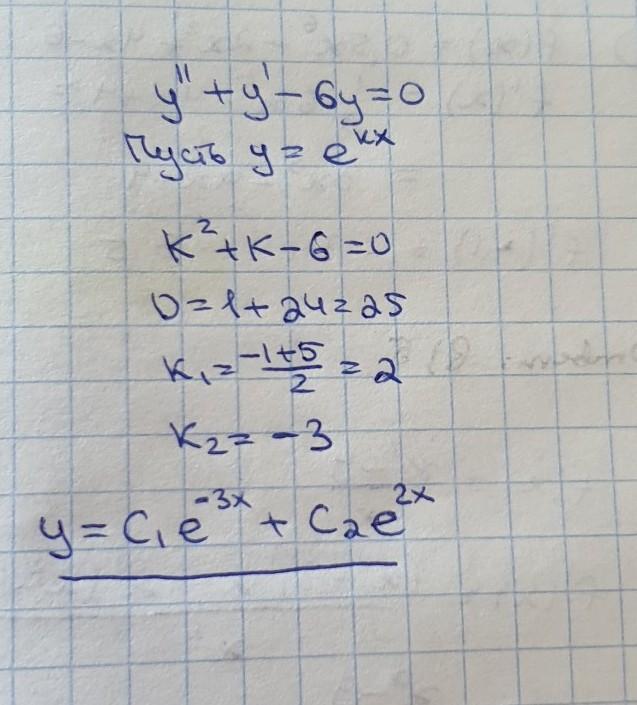 y'' + y' - 6y = 0
Пусть y = e^{kx}
k² + k - 6 = 0
D = 1 + 24 = 25
k₁ = \frac{-1+5}{2} = 2
k₂ = -3
y = C₁e^{-3x} + C₂e^{2x}